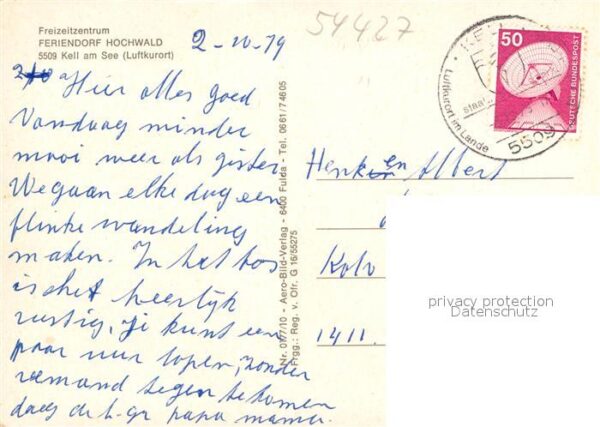 Freizeitzentrum
FERIENDORF HOCHWALD
5509 Kell am See (Luftkurort)
2-10-79
54427
Hier alles goed
Vandaag minder
mooi weer als gister
We gaan elke dag een
flinke wandeling
maken. In het bos
is het heerlijk
rustig, je kunt een
paar uur lopen, zonder
iemand tegen te komen
daag de h. gr papa mama.
Nr. 077/10 - Aero-Bild-Verlag - 6400 Fulda - Tel. 0661/74605
Frgg.: Reg. v. Ofr. G 16/55275
Henk en Albert
Kolv
1411
50
DEUTSCHE BUNDESPOST
KELL
Luftkurort im Lande
5509
privacy protection
Datenschutz